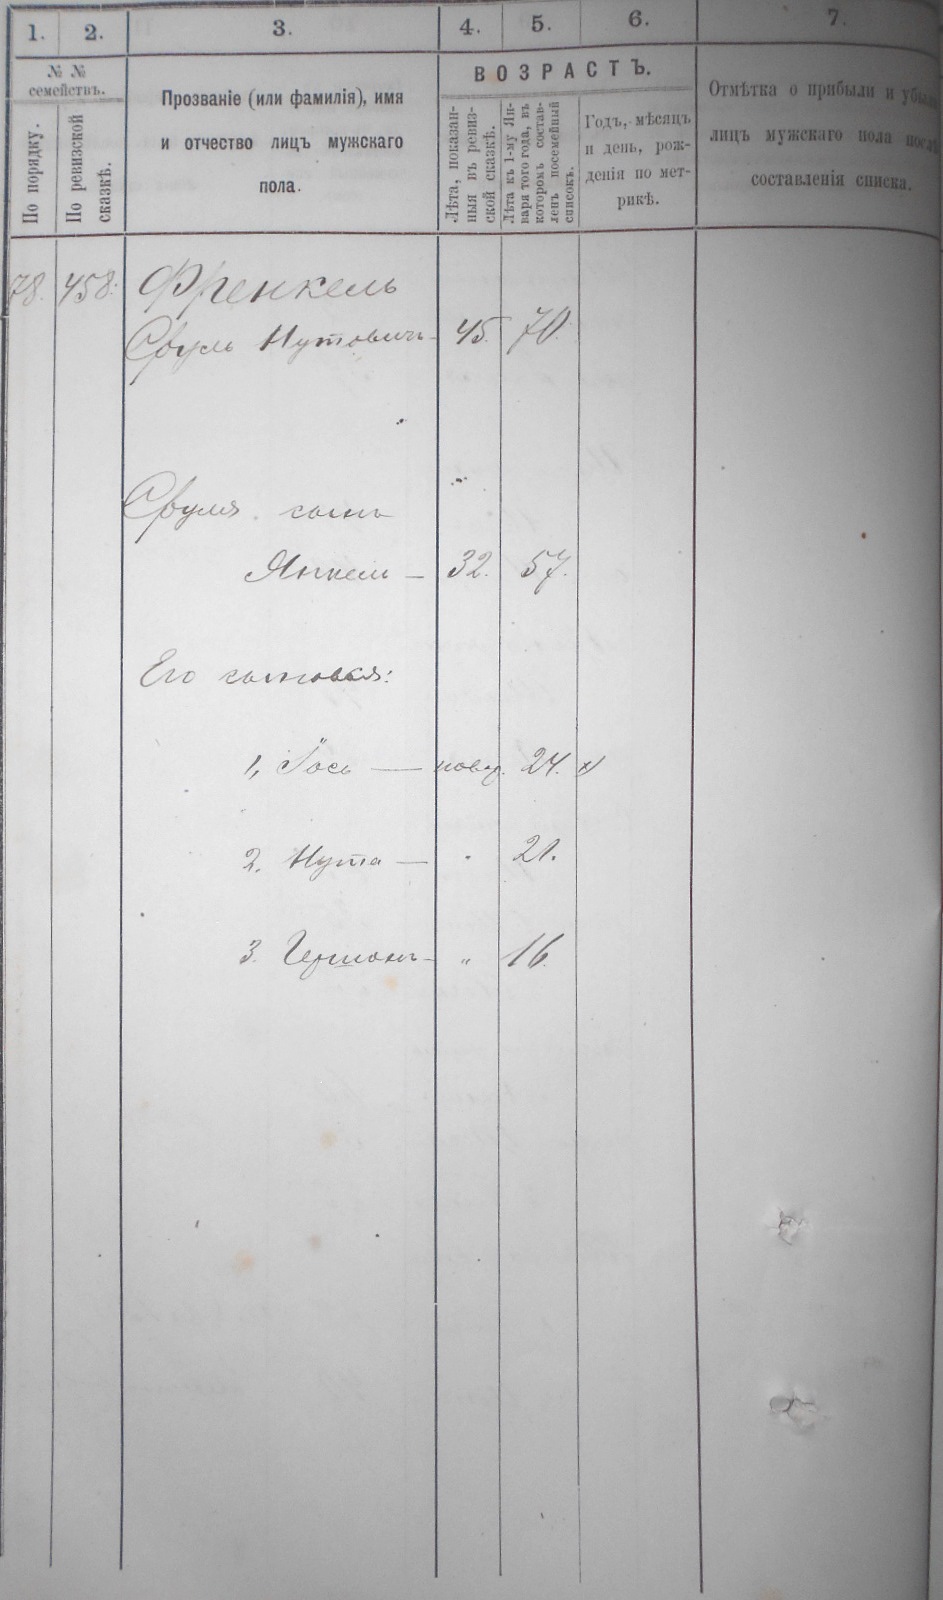 1. 2. 3. 4. 5. 6. 7.
№ №
семействъ.
По порядку.
По ревизской
сказкѣ.
Прозваніе (или фамилія), имя
и отчество лицъ мужскаго
пола.
ВОЗРАСТЪ.
Лѣта, показан-
ныя въ ревиз-
ской сказкѣ.
Лѣта къ 1-му Ян-
варя того года, въ
которомъ состав-
ленъ посемейный
списокъ.
Годъ, мѣсяцъ
и день, рож-
денія по мет-
рикѣ.
Отмѣтка о прибыли и
лицъ мужскаго пола
составленія списка.
78. 458. Френкель
Сруль Нутовичъ 45. 70.
Сруля сынъ
Янкель — 32. 57.
Его сыновья:
1, Іось — новор. 24. x)
2. Нута — 21.
3. Гершонъ — „ 16.